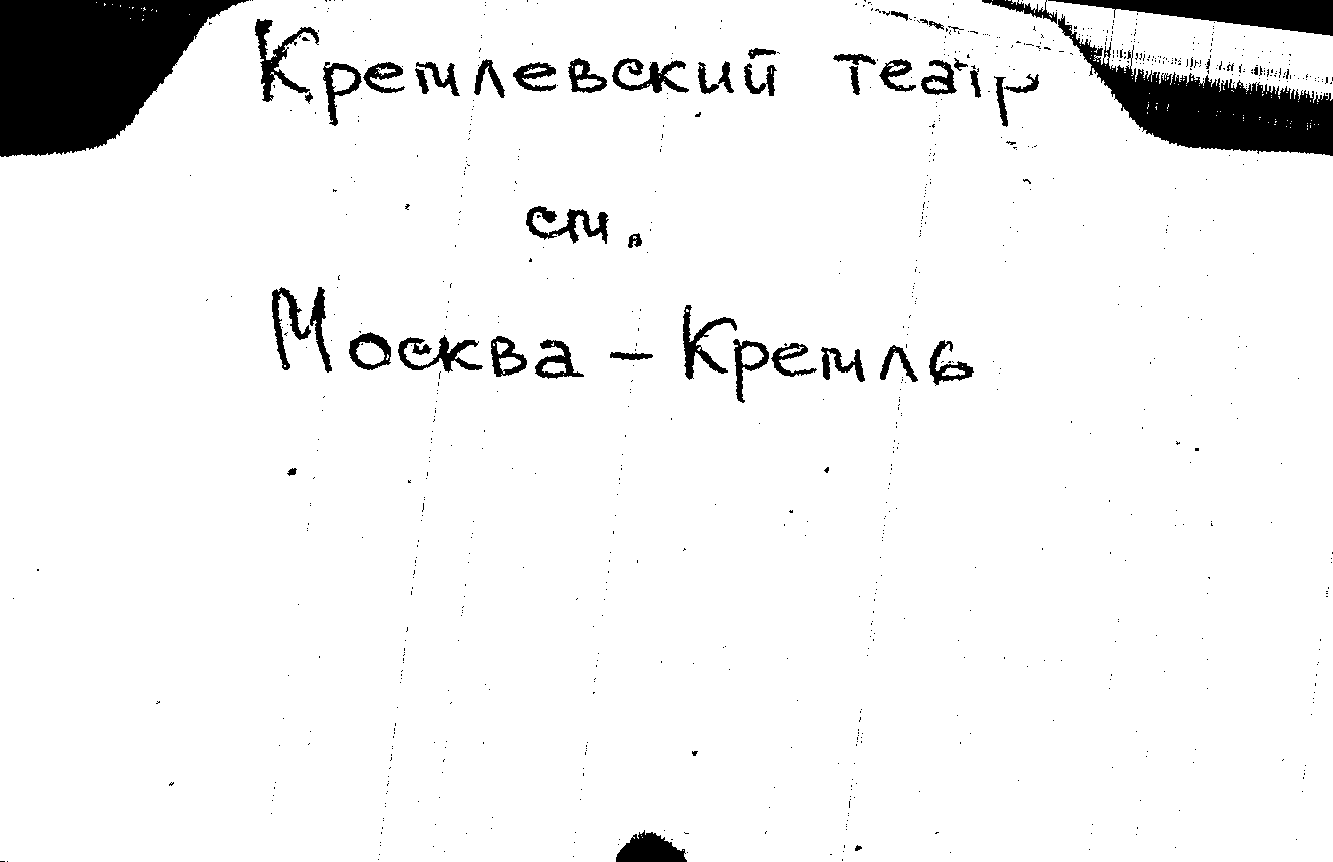 Кремлевский театр
см.
Москва – Кремль